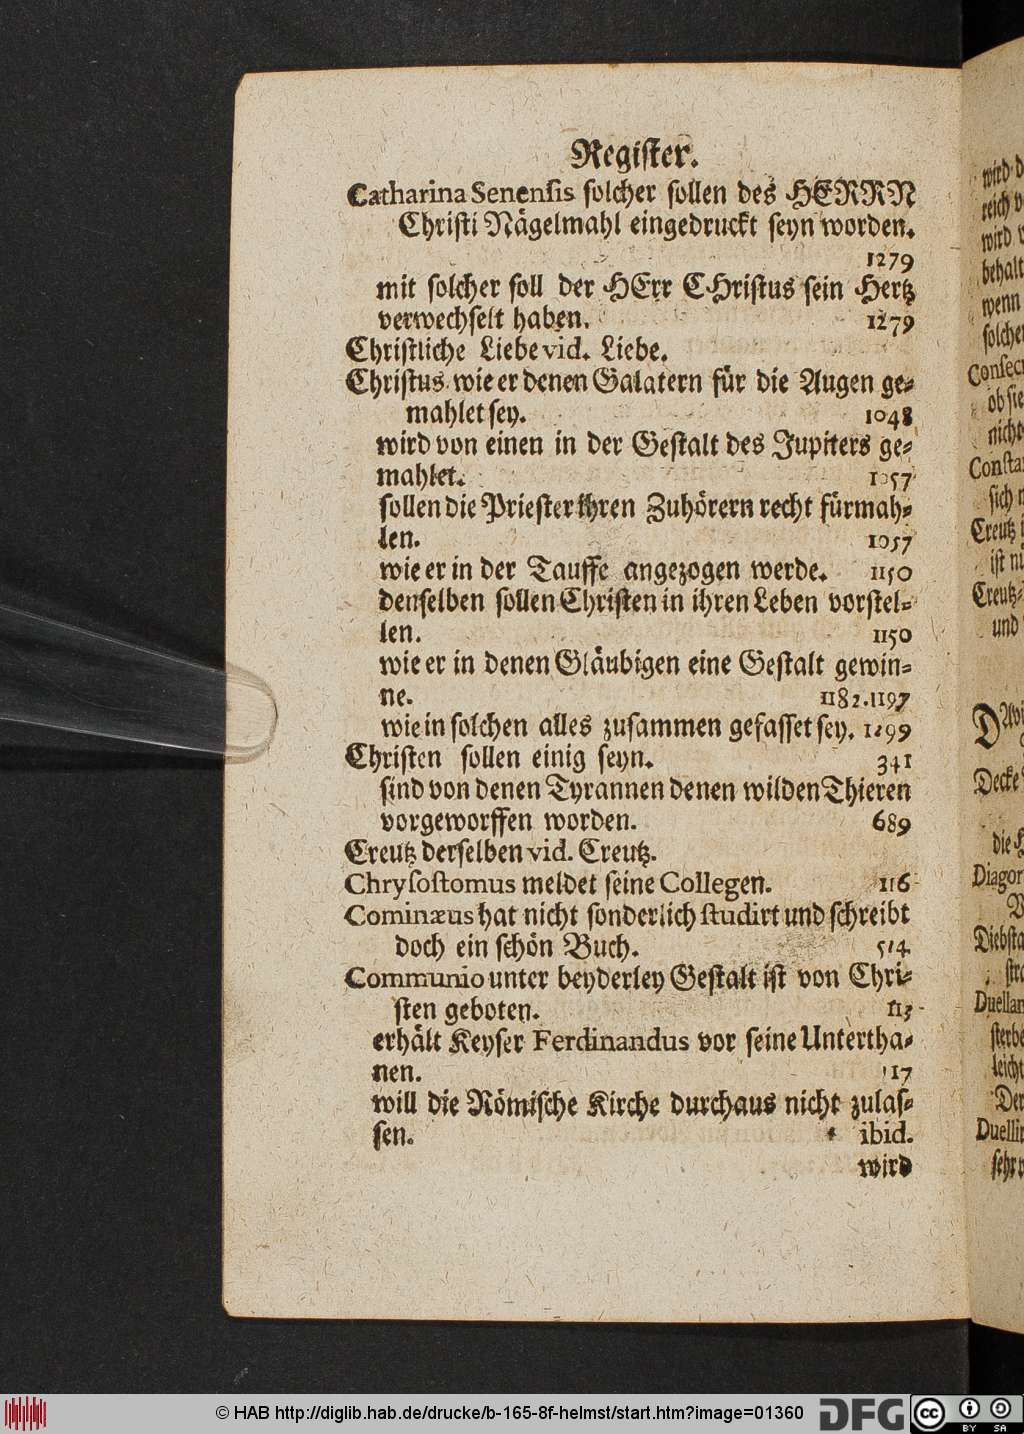 Regiſter.
Catharina Senenſis ſolcher ſollen des HERRN
Chriſti Nägelmahl eingedruckt ſeyn worden.
1279
mit ſolcher ſoll der HErr CHriſtus ſein Hertz
verwechſelt haben. 1279
Chriſtliche Liebe vid. Liebe.
Chriſtus wie er denen Galatern für die Augen ge⸗
mahlet ſey. 1048
wird von einen in der Geſtalt des Jupiters ge⸗
mahlet. 1057
ſollen die Prieſter ihren Zuhörern recht fürmah⸗
len. 1057
wie er in der Tauffe angezogen werde. 1150
denſelben ſollen Chriſten in ihren Leben vorſtel⸗
len. 1150
wie er in denen Gläubigen eine Geſtalt gewin⸗
ne. 1182. 1197
wie in ſolchen alles zuſammen gefaſſet ſey. 1199
Chriſten ſollen einig ſeyn. 341
ſind von denen Tyrannen denen wilden Thieren
vorgeworffen worden. 689
Creutz derſelben vid. Creutz.
Chryſoſtomus meldet ſeine Collegen. 116
Cominæus hat nicht ſonderlich ſtudirt und ſchreibt
doch ein ſchön Buch. 514
Communio unter beyderley Geſtalt iſt von Chri⸗
ſten geboten. 113
erhält Keyſer Ferdinandus vor ſeine Untertha⸗
nen. 117
will die Römiſche Kirche durchaus nicht zulaſ⸗
ſen. ibid.
wird
wird d
reich v
wird v
behalt
wenn
ſolche
Conſec
ob ſie
nicht
Conſta
ſich
Creutz
iſt
Creutz⸗
und
Decke
die
Diagor
Diebſta
Duellan
ſterbe
leicht
Der
Duellin
ſehr
© HAB http://diglib.hab.de/drucke/b-165-8f-helmst/start.htm?image=01360
DFG
cc BY SA